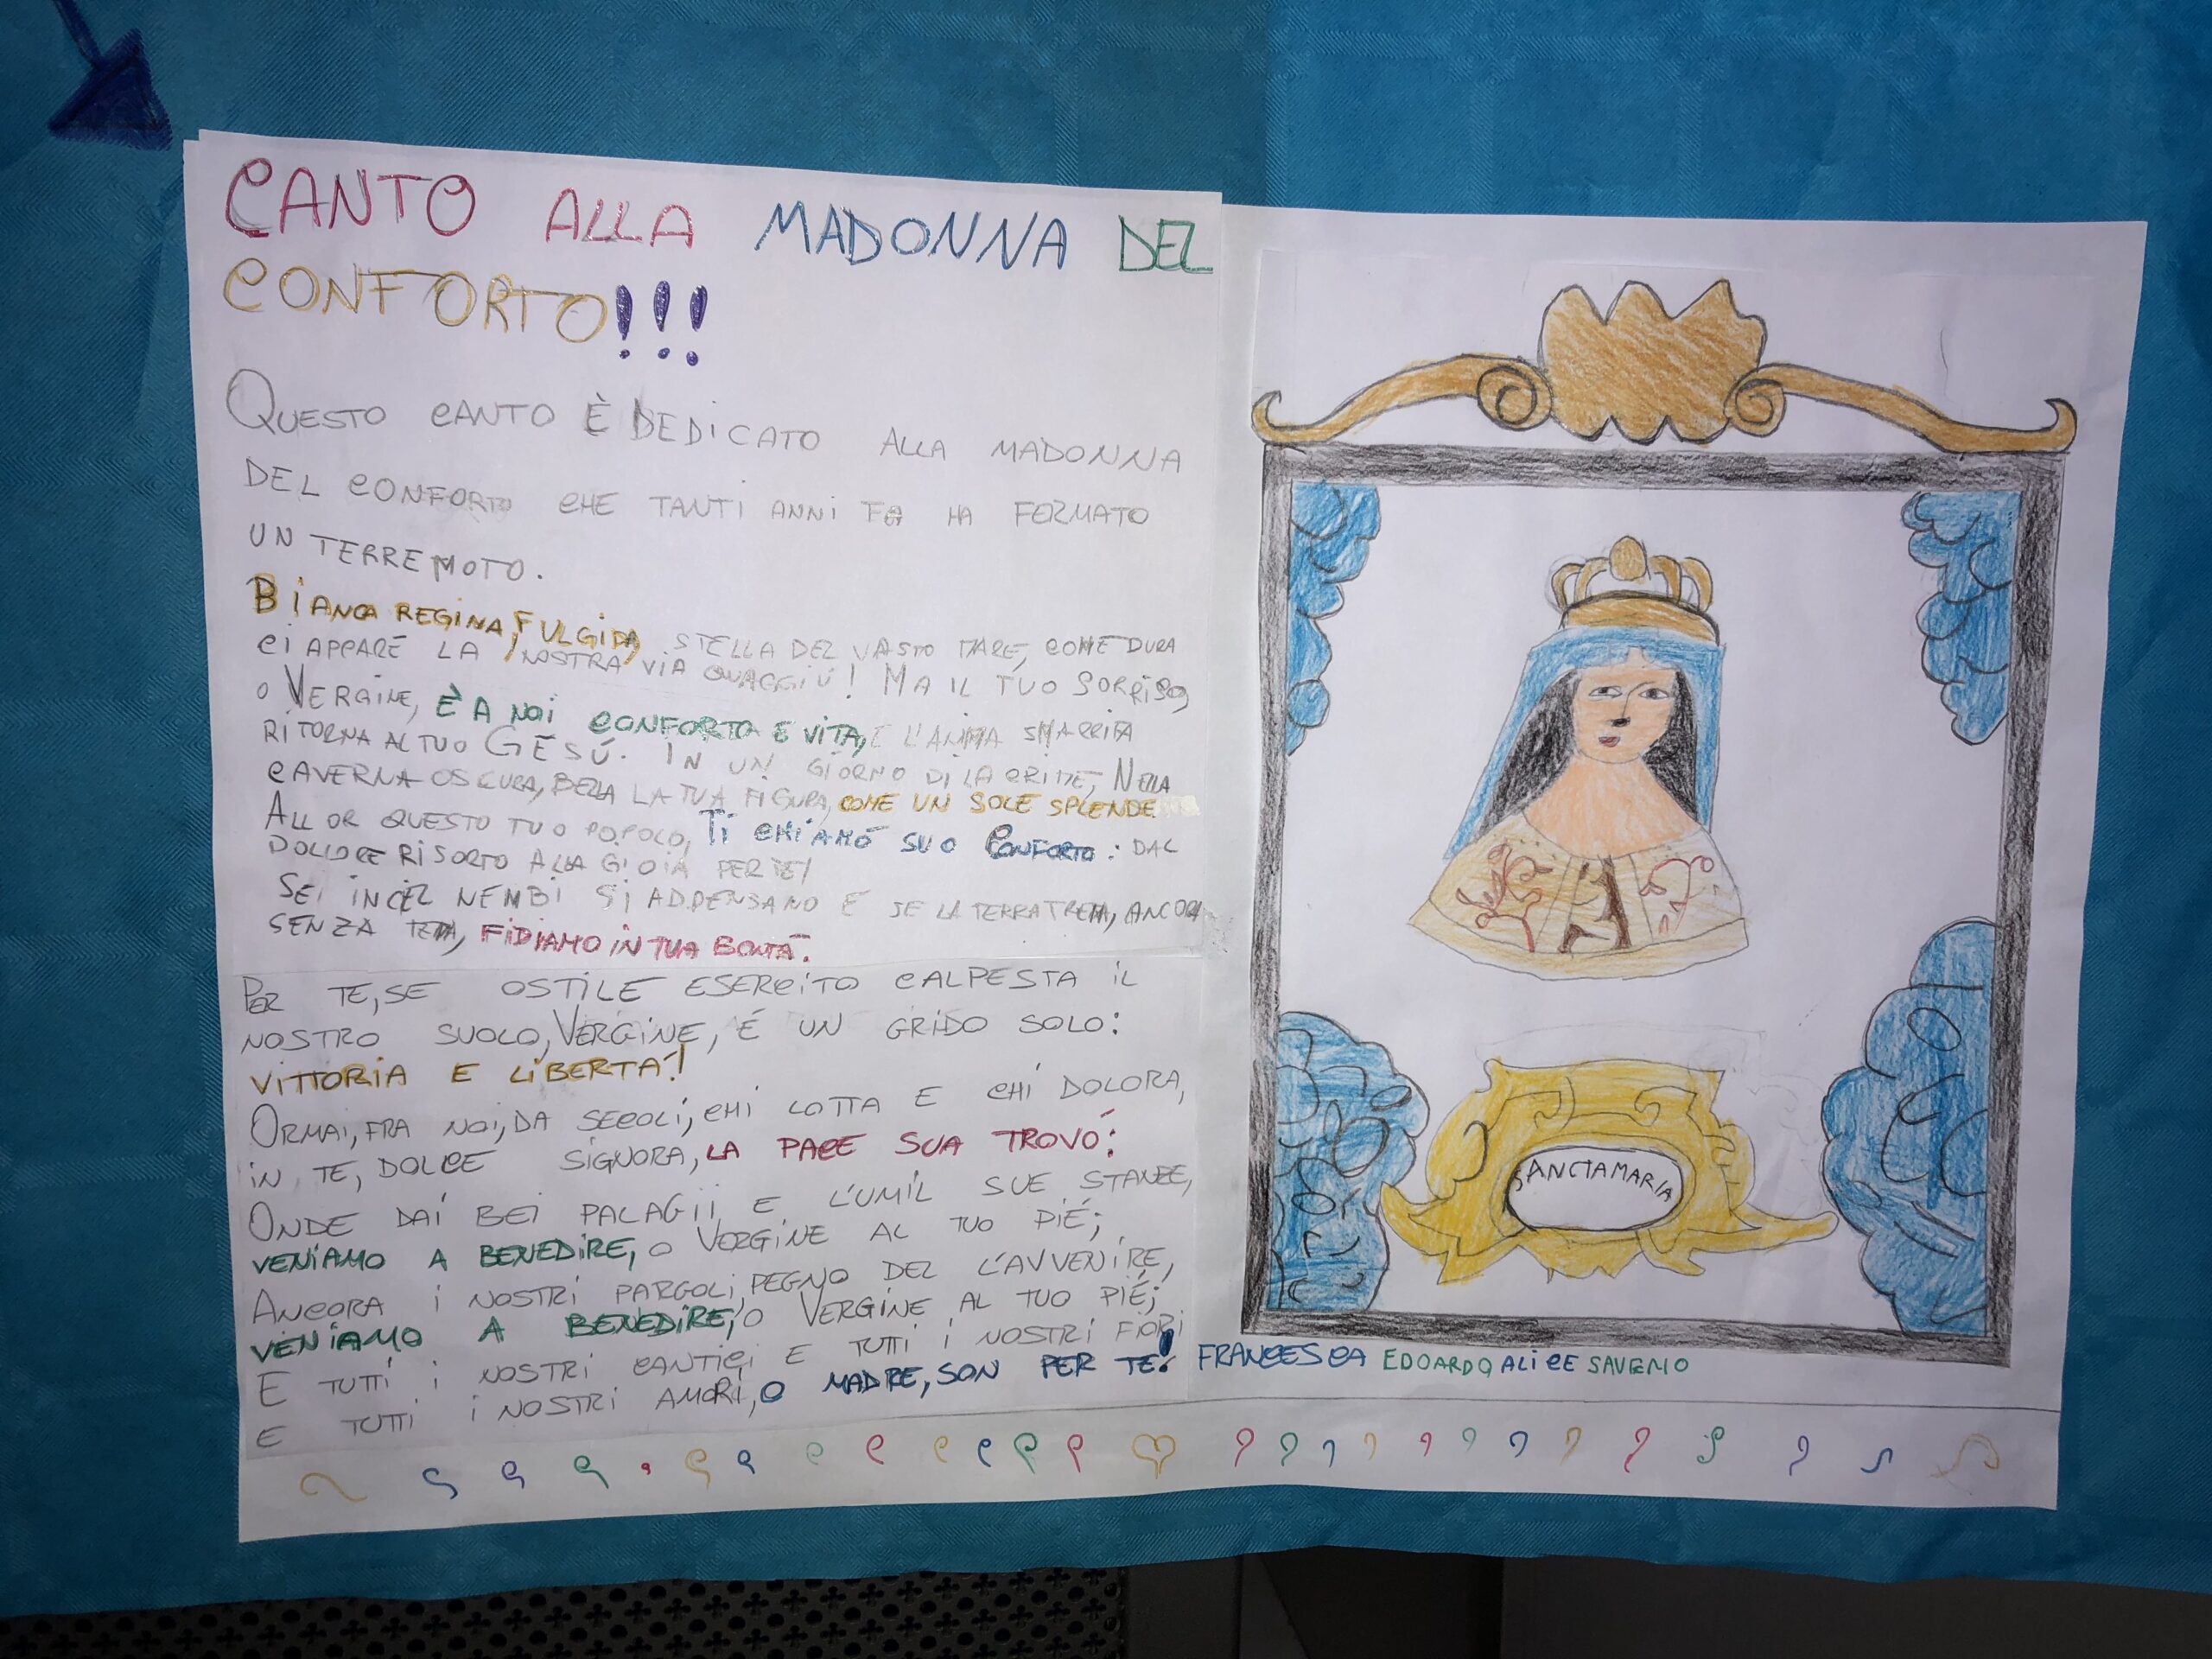 CANTO ALLA MADONNA DEL
CONFORTO!!!
QUESTO CANTO È DEDICATO ALLA MADONNA
DEL CONFORTO CHE TANTI ANNI FA HA FERMATO
UN TERREMOTO.
BIANCA REGINA, FULGIDA, STELLA DEL VASTO MARE, COME DURA
CI APPARE LA NOSTRA VIA QUAGGIÙ! MA IL TUO SORRISO,
O VERGINE, È A NOI CONFORTO E VITA, E L'ANIMA SMARRITA
RITORNA AL TUO GESÚ. IN UN GIORNO DI LACRIME, NELLA
CAVERNA OSCURA, BELLA LA TUA FIGURA, COME UN SOLE SPLENDE
ALLOR QUESTO TUO POPOLO, TI CHIAMÓ SUO CONFORTO: DAL
DOLLORE RISORTO ALLA GIOIA PER TE!
SEI IN CEL NEMBI SI ADDENSANO E SE LA TERRA TREMA, ANCORA
SENZA TEMA, FIDIAMO IN TUA BONTÀ.
PER TE, SE OSTILE ESERCITO CALPESTA IL
NOSTRO SUOLO, VERGINE, É UN GRIDO SOLO:
VITTORIA E LIBERTÁ!
ORMAI, FRA NOI, DA SECOLI, CHI LOTTA E CHI DOLORA,
IN TE, DOLCE SIGNORA, LA PACE SUA TROVÓ:
ONDE DAI BEI PALAGII E L'UMIL SUE STANZE,
VENIAMO A BENEDIRE, O VERGINE AL TUO PIÉ;
ANCORA I NOSTRI PARGOLI, PEGNO DEL L'AVVENIRE,
VENIAMO A BENEDIRE, O VERGINE AL TUO PIÉ;
E TUTTI I NOSTRI CANTICI E TUTTI I NOSTRI FIORI
E TUTTI I NOSTRI AMORI, O MADRE, SON PER TE!
SANCTAMARIA
FRANCESCA EDOARDO ALICE SAVERIO